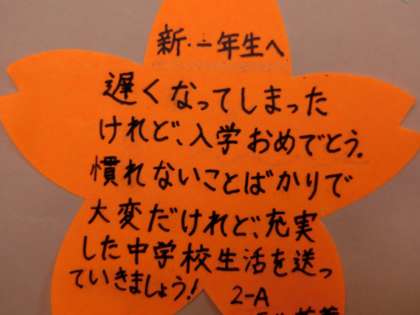 新・一年生へ
遅くなってしまった
けれど、入学おめでとう。
慣れないことばかりで
大変だけれど、充実
した中学校生活を送っ
ていきましょう!
2-A